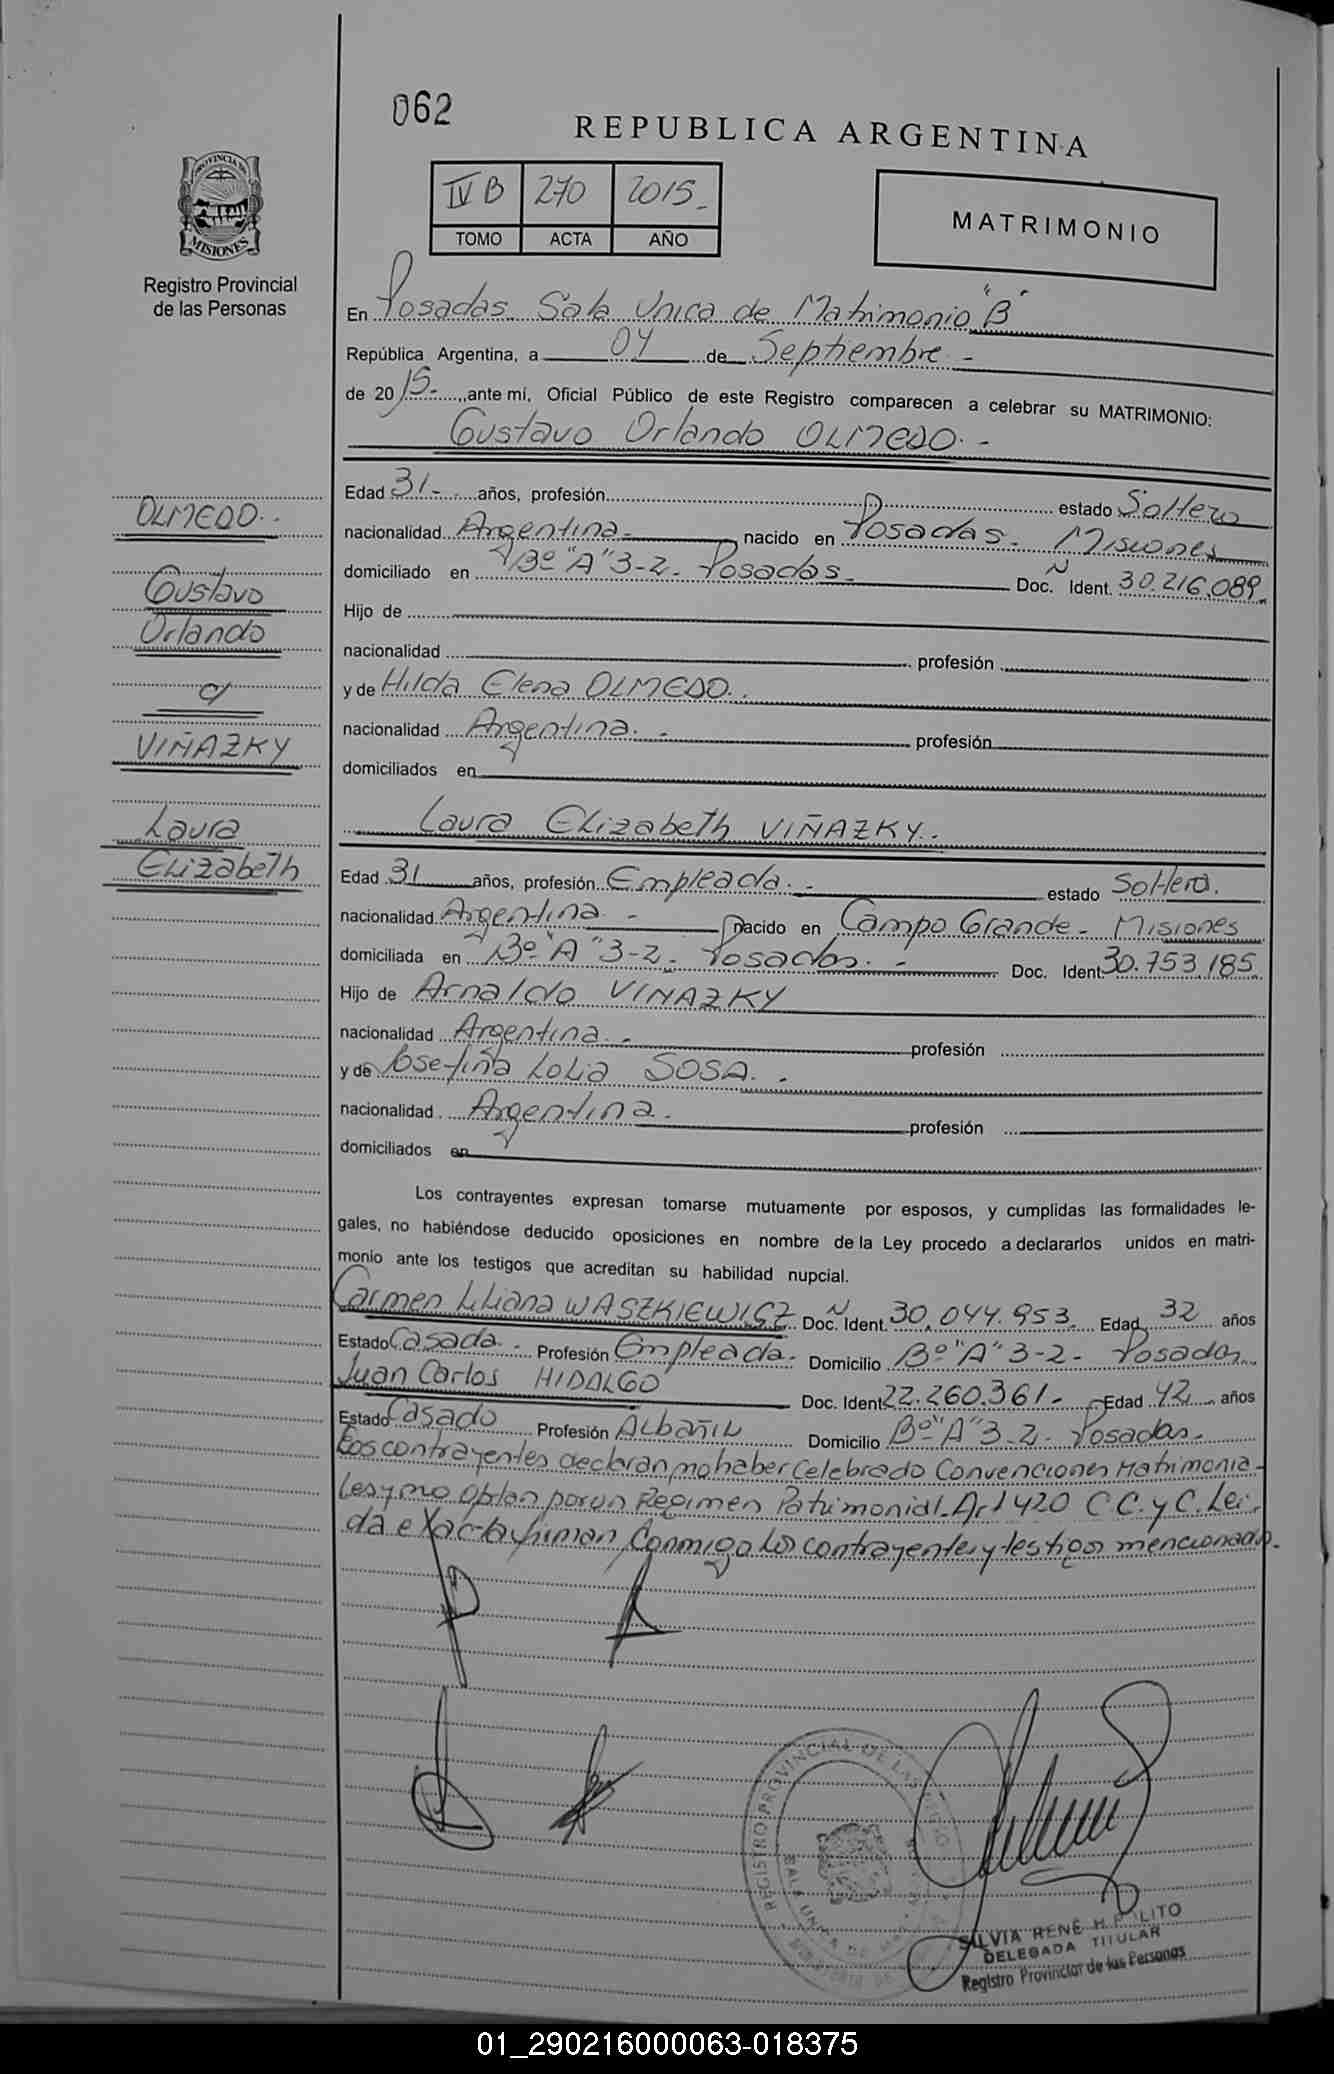 062
REPUBLICA ARGENTINA
IV B 270 2015
TOMO ACTA AÑO
MATRIMONIO
PROVINCIA DE
MISIONES
Registro Provincial
de las Personas
En Posadas Sala Unica de Matrimonio "B"
República Argentina, a 04 de Septiembre -
de 2015.- ante mí, Oficial Público de este Registro comparecen a celebrar su MATRIMONIO:
Gustavo Orlando OLMEDO. -
Edad 31.- años, profesión estado Soltero
nacionalidad Argentina. nacido en Posadas. Misiones
domiciliado en Bº "A" 3-2. Posadas. Doc. Ident. 30.216.089.
Hijo de
nacionalidad profesión
y de Hilda Elena OLMEDO.
nacionalidad Argentina. - profesión
domiciliados en
Laura Elizabeth VIÑAZKY.
Edad 31 años, profesión Empleada. - estado Soltera.
nacionalidad Argentina. - nacido en Campo Grande - Misiones
domiciliada en Bº "A" 3-2. Posadas. - Doc. Ident. 30.753.185.
Hijo de Arnaldo VIÑAZKY
nacionalidad Argentina. - profesión
y de Josefina Lolia SOSA. -
nacionalidad Argentina. profesión
domiciliados en
OLMEDO.
Gustavo
Orlando
c/
VIÑAZKY
Laura
Elizabeth
Los contrayentes expresan tomarse mutuamente por esposos, y cumplidas las formalidades le-
gales, no habiéndose deducido oposiciones en nombre de la Ley procedo a declararlos unidos en matri-
monio ante los testigos que acreditan su habilidad nupcial.
Carmen Liliana WASZKIEWISZ Doc. Ident. 30.044.953. Edad 32 años
Estado Casada. - Profesión Empleada. Domicilio Bº "A" 3-2- Posadas.
Juan Carlos HIDALGO Doc. Ident. 22.260.361- Edad 42 años
Estado Casado Profesión Albañil Domicilio Bº "A" 3-2- Posadas.
Los contrayentes declaran no haber Celebrado Convenciones Matrimonia-
les y no optan por un Regimen Patrimonial. Art 420 C C. y C. Lei-
da exacta firman Conmigo los contrayentes y testigos mencionados.
REGISTRO PROVINCIAL DE LAS
SALA UNICA DE
SILVIA RENÉ HIPOLITO
DELEGADA TITULAR
Registro Provincial de las Personas
01_290216000063-018375